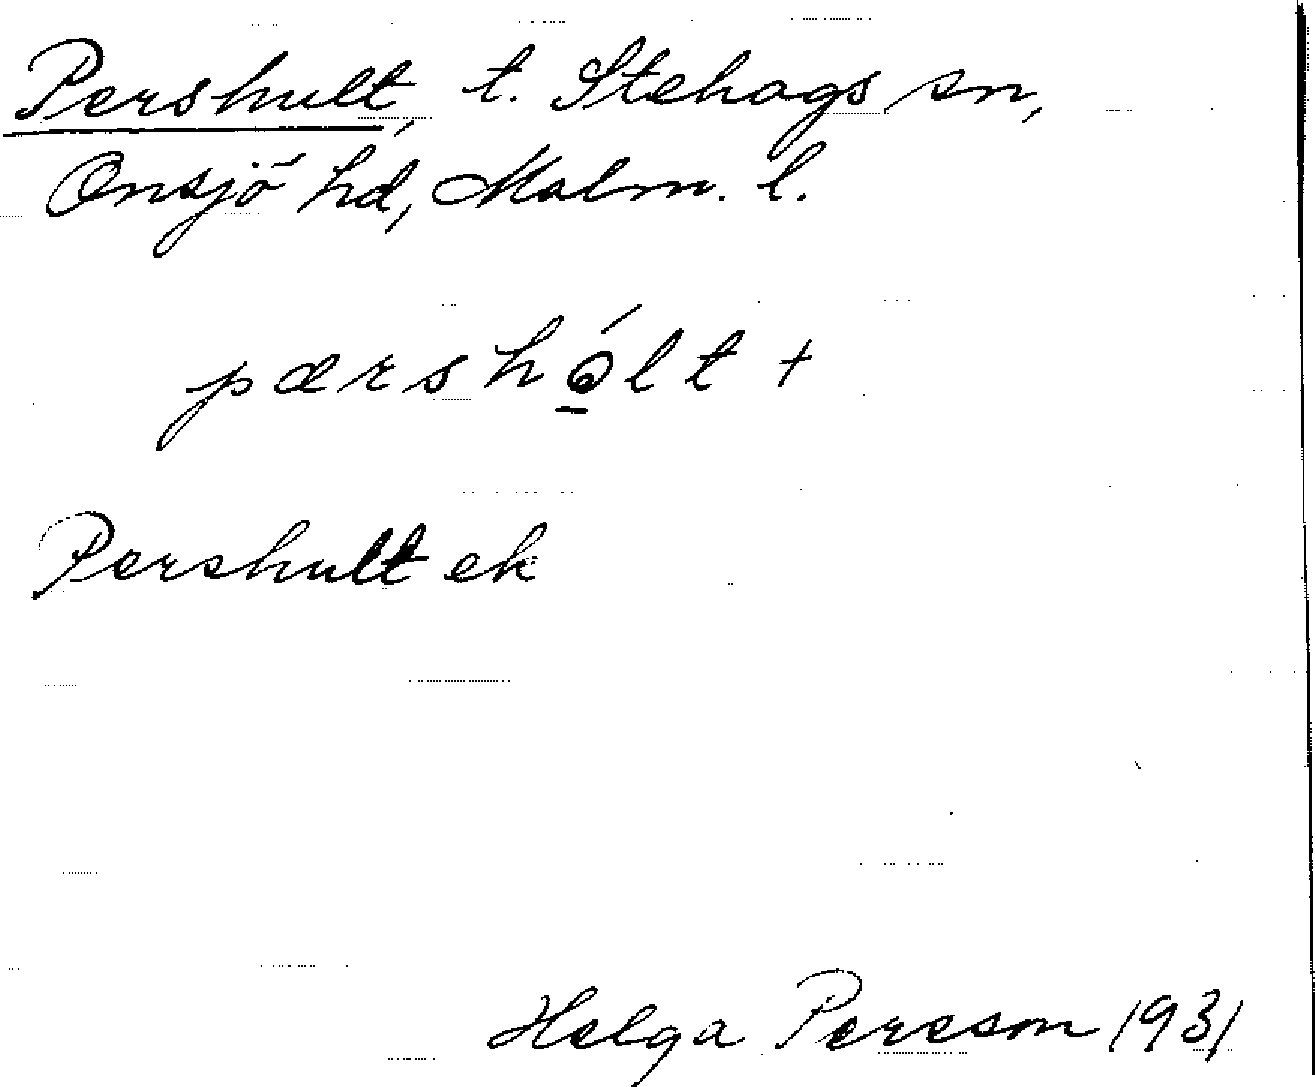 Pershult, t. Stehags sn,
Onsjö hd, Malm. l.
pærshó̱lt +
Pershult ek
Helga Persson 1931